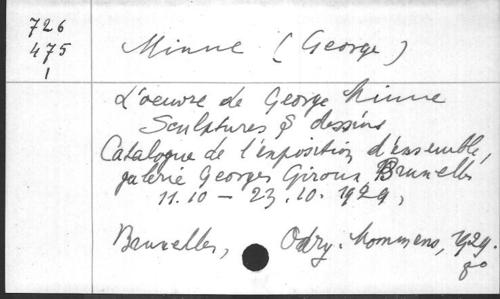 726
475
1
Minne (George)
L'oeuvre de George Minne
Sculptures & dessins
Catalogue de l'exposition d'ensemble,
galerie Georges Giroux Bruxelles
11.10 – 23.10.1929,
Bruxelles, Odry-Mommens, 1929.